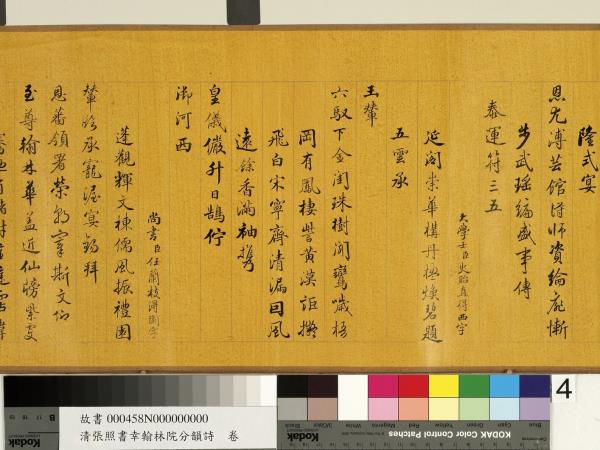 隆式宴
恩尤溥芸館得師資綸扉慚
步武瑤編盛事傳
泰運符三五
大學士臣史貽直得西字
延閣崇華構丹極煥碧題
五雲承
玉輦
六馭下金閨珠樹閒鸞噦梧
岡有鳳棲譽黃漢詎擬
飛白宋寧齊清漏回風
遠餘香滿袖携
皇儀儼升日鵠佇
御河西
尚書臣任蘭枝得園字
蓬觀輝文棟儒風振禮園
輦路承寵渥宴鎬拜
恩蕃領署榮斯文仰
至尊翰林華蓋近仙牓紫雯
故書 000458N000000000
清張照書幸翰林院分韻詩 卷
4
Kodak
KODAK Color Control Patches
Blue Cyan Green Yellow Red Magenta White 3/Color Black